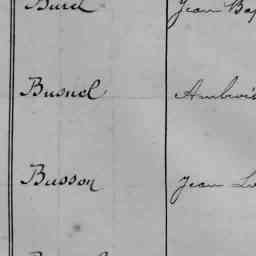 Burel Jean Bap
Busnel Ambrois
Busson Jean Lo